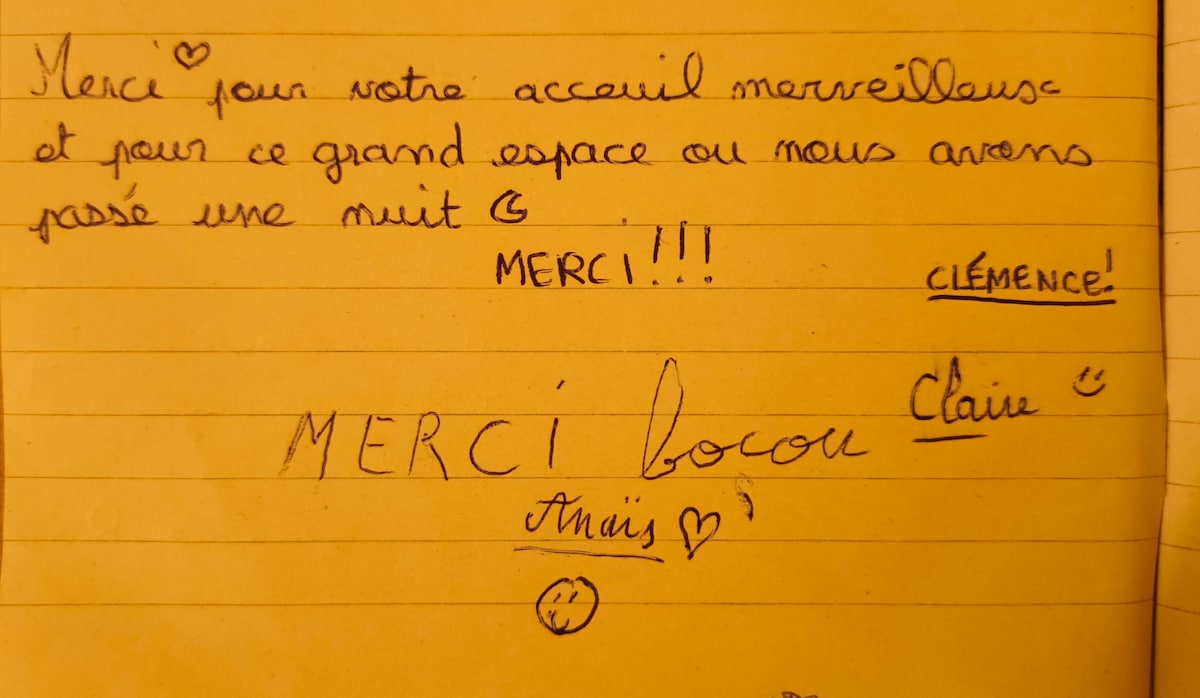 Merci ♡ pour votre acceuil merveilleux
et pour ce grand espace ou nous avons
passé une nuit ☾
MERCi!!!
CLÉMENCE!
Claire
MERCi bocou
Anaïs ♡